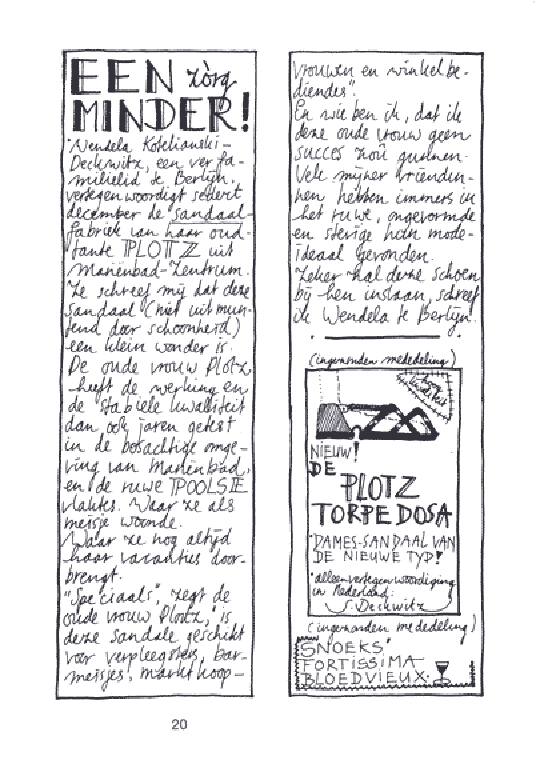 EEN zòrg
MINDER!
Wendela Koteliawski-
Deckwitz, een ver fa-
milielid te Berlijn.
vertegenwoordigt sedert
december de sandaal-
fabriek van haar oud-
tante PLOTZ uit
Mariënbad-Zentrum.
Ze schreef mij dat deze
sandaal (niet uitmun-
tend door schoonheid)
een klein wonder is.
De oude vrouw Plotz
heeft de werking en
de stabiele kwaliteit
dan ook jaren getest
in de bosachtige omge-
ving van Mariënbad,
en de ruwe POOLSE
vlaktes. Waar ze als
meisje woonde.
Waar ze nog altijd
haar vacanties door-
brengt.
"Speciaals", zegt de
oude vrouw Plotz, "is
deze sandale geschikt
voor verpleegsters, bar-
meisjes, marktkoop-
vrouwen en winkelbe-
diendes".
En wie ben ik, dat ik
deze oude vrouw geen
succes zou gunnen.
Vele mijner vriendin-
nen hebben immers in
het ruwe, ongevormde
en stevige hun mode-
ideaal gevonden.
Zeker zal deze schoen
bij hen inslaan, schreef
ik Wendela te Berlijn.
(ingezonden mededeling)
NIEUW!
DE
PLOTZ
TORPEDOSA
DAMES-SANDAAL VAN
DE NIEUWE TYD!
alleenvertegenwoordiging
in Nederland:
S. Deckwitz
(ingezonden mededeling)
SNOEKS'
FORTISSIMA
BLOEDVIEUX
20